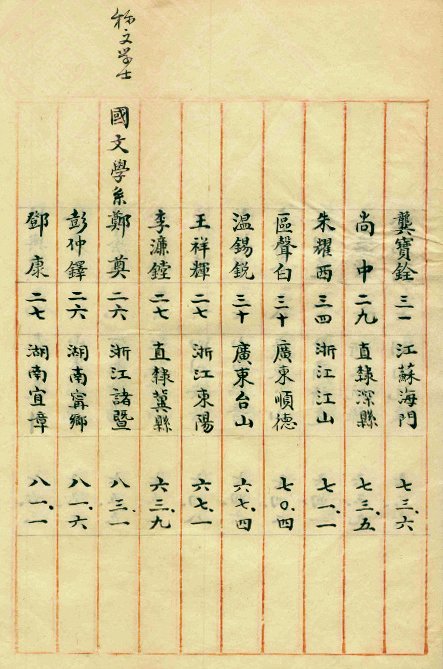 龔寶銓 三一 江蘇海門 七三.六
尚中 二九 直隸深縣 七三.五
朱耀西 三四 浙江江山 七一.一
區聲白 三十 廣東順德 七〇.四
温錫銳 三十 廣東台山 六七.四
王祥輝 二七 浙江東陽 六七.一
李濂鏜 二七 直隸冀縣 六三.九
國文學系
鄭奠 二六 浙江諸暨 八三.一
彭仲鐸 二六 湖南甯鄉 八一.六
鄧康 二七 湖南宜章 八一.一
称文学士